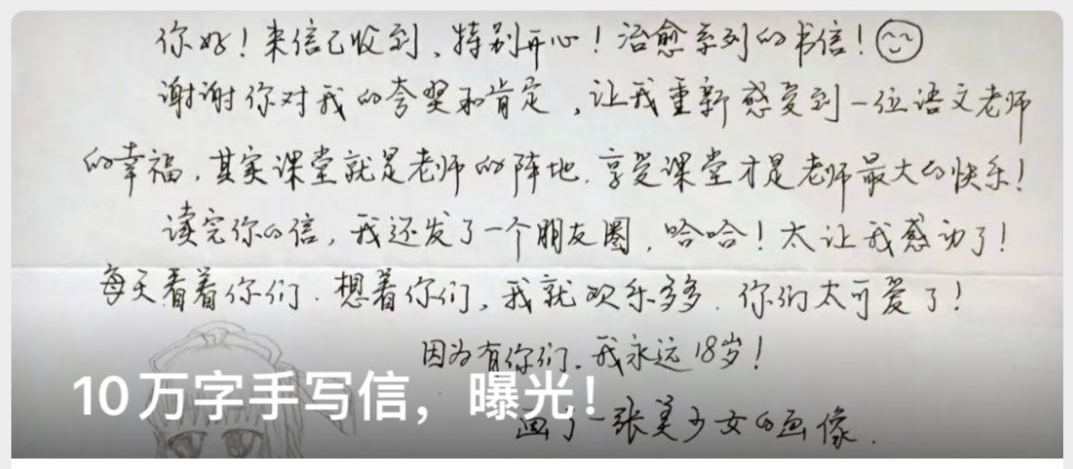 你好！来信已收到，特别开心！治愈系列的书信！
谢谢你对我的夸奖和肯定，让我重新感受到一位语文老师
的幸福，其实课堂就是老师的阵地，享受课堂才是老师最大的快乐！
读完你的信，我还发了一个朋友圈，哈哈！太让我感动了！
每天看着你们，想着你们，我就欢乐多多，你们太可爱了！
因为有你们，我永远18岁！
10万字手写信，曝光！
画了一张美少女的画像。